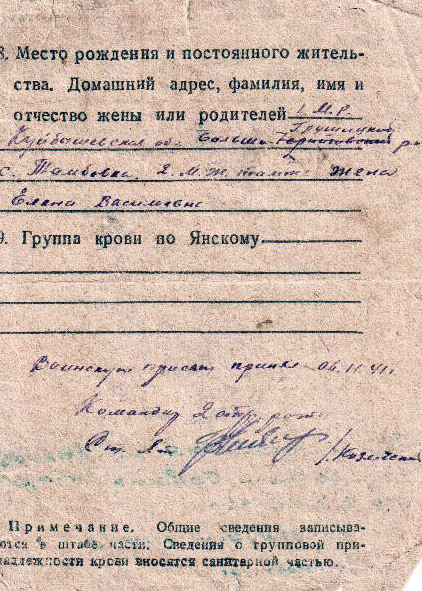 8. Место рождения и постоянного житель-
ства. Домашний адрес, фамилия, имя и
отчество жены или родителей 1 М.Р.
Куйбышевская об. Больше-
с. Тамбовка 2. М.Ж там же жена
Елена Васильевна
9. Группа крови по Янскому
Воинскую присягу принял 06.11.41.
Командир 2 роты
Ст. Лт /Козельский
Примечание. Общие сведения записыва-
ются в штабе части. Сведения о групповой при-
надлежности крови вносятся санитарной частью.